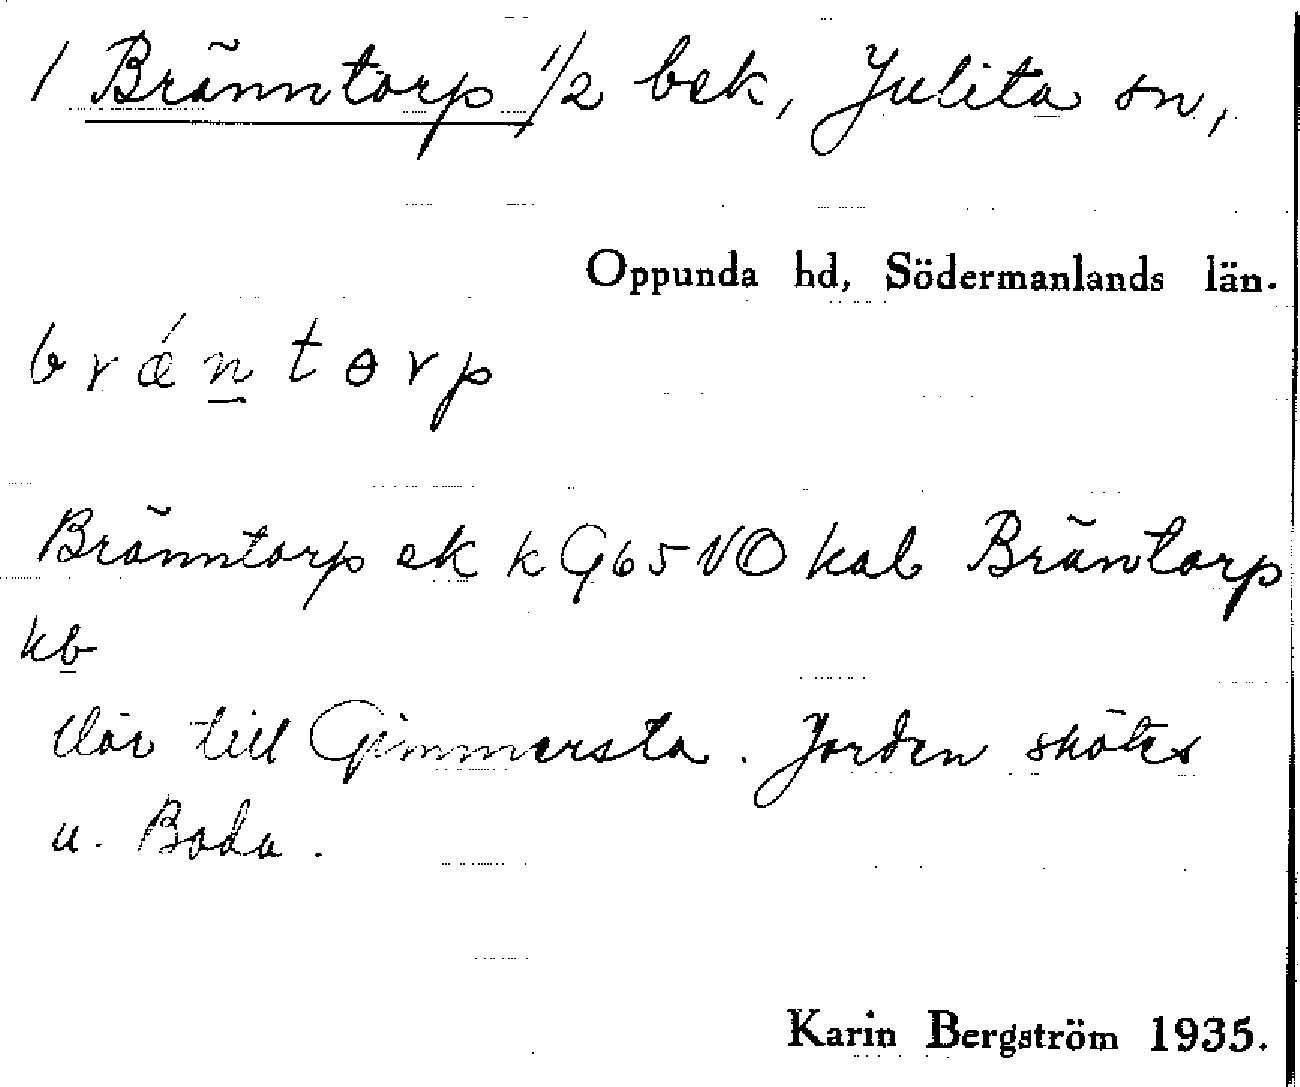 1 Bränntorp 1/2 bek, Julita sn,
Oppunda hd, Södermanlands län.
brǽn̲tɵrp
Bränntorp ek k G65 NO kab Bräntorp
kb̲
Hör till Gimmersta. Jorden skötes
u. Boda.
Karin Bergström 1935.